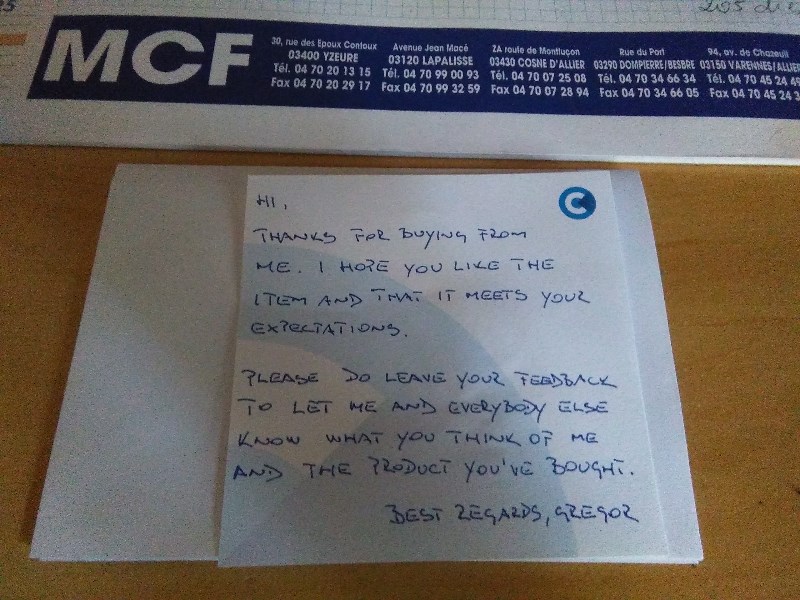 MCF
30, rue des Epoux Contoux
03400 YZEURE
Tél. 04 70 20 13 15
Fax 04 70 20 29 17
Avenue Jean Macé
03120 LAPALISSE
Tél. 04 70 99 00 93
Fax 04 70 99 32 59
ZA route de Montluçon
03430 COSNE D'ALLIER
Tél. 04 70 07 25 08
Fax 04 70 07 28 94
Rue du Port
03290 DOMPIERRE/BESBRE
Tél. 04 70 34 66 34
Fax 04 70 34 66 05
94, av. de Chazeuil
03150 VARENNES/ALLIER
Tél. 04 70 45 24
Fax 04 70 45 24
HI,
THANKS FOR BUYING FROM
ME. I HOPE YOU LIKE THE
ITEM AND THAT IT MEETS YOUR
EXPECTATIONS.
PLEASE DO LEAVE YOUR FEEDBACK
TO LET ME AND EVERYBODY ELSE
KNOW WHAT YOU THINK OF ME
AND THE PRODUCT YOU'VE BOUGHT.
BEST REGARDS, GREGOR